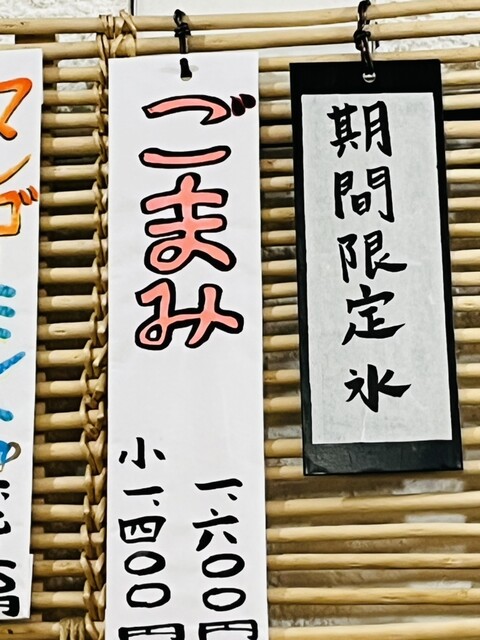 期間限定氷
ごまみ
一、六〇〇円
小一、四〇〇円
マンゴ
ミ